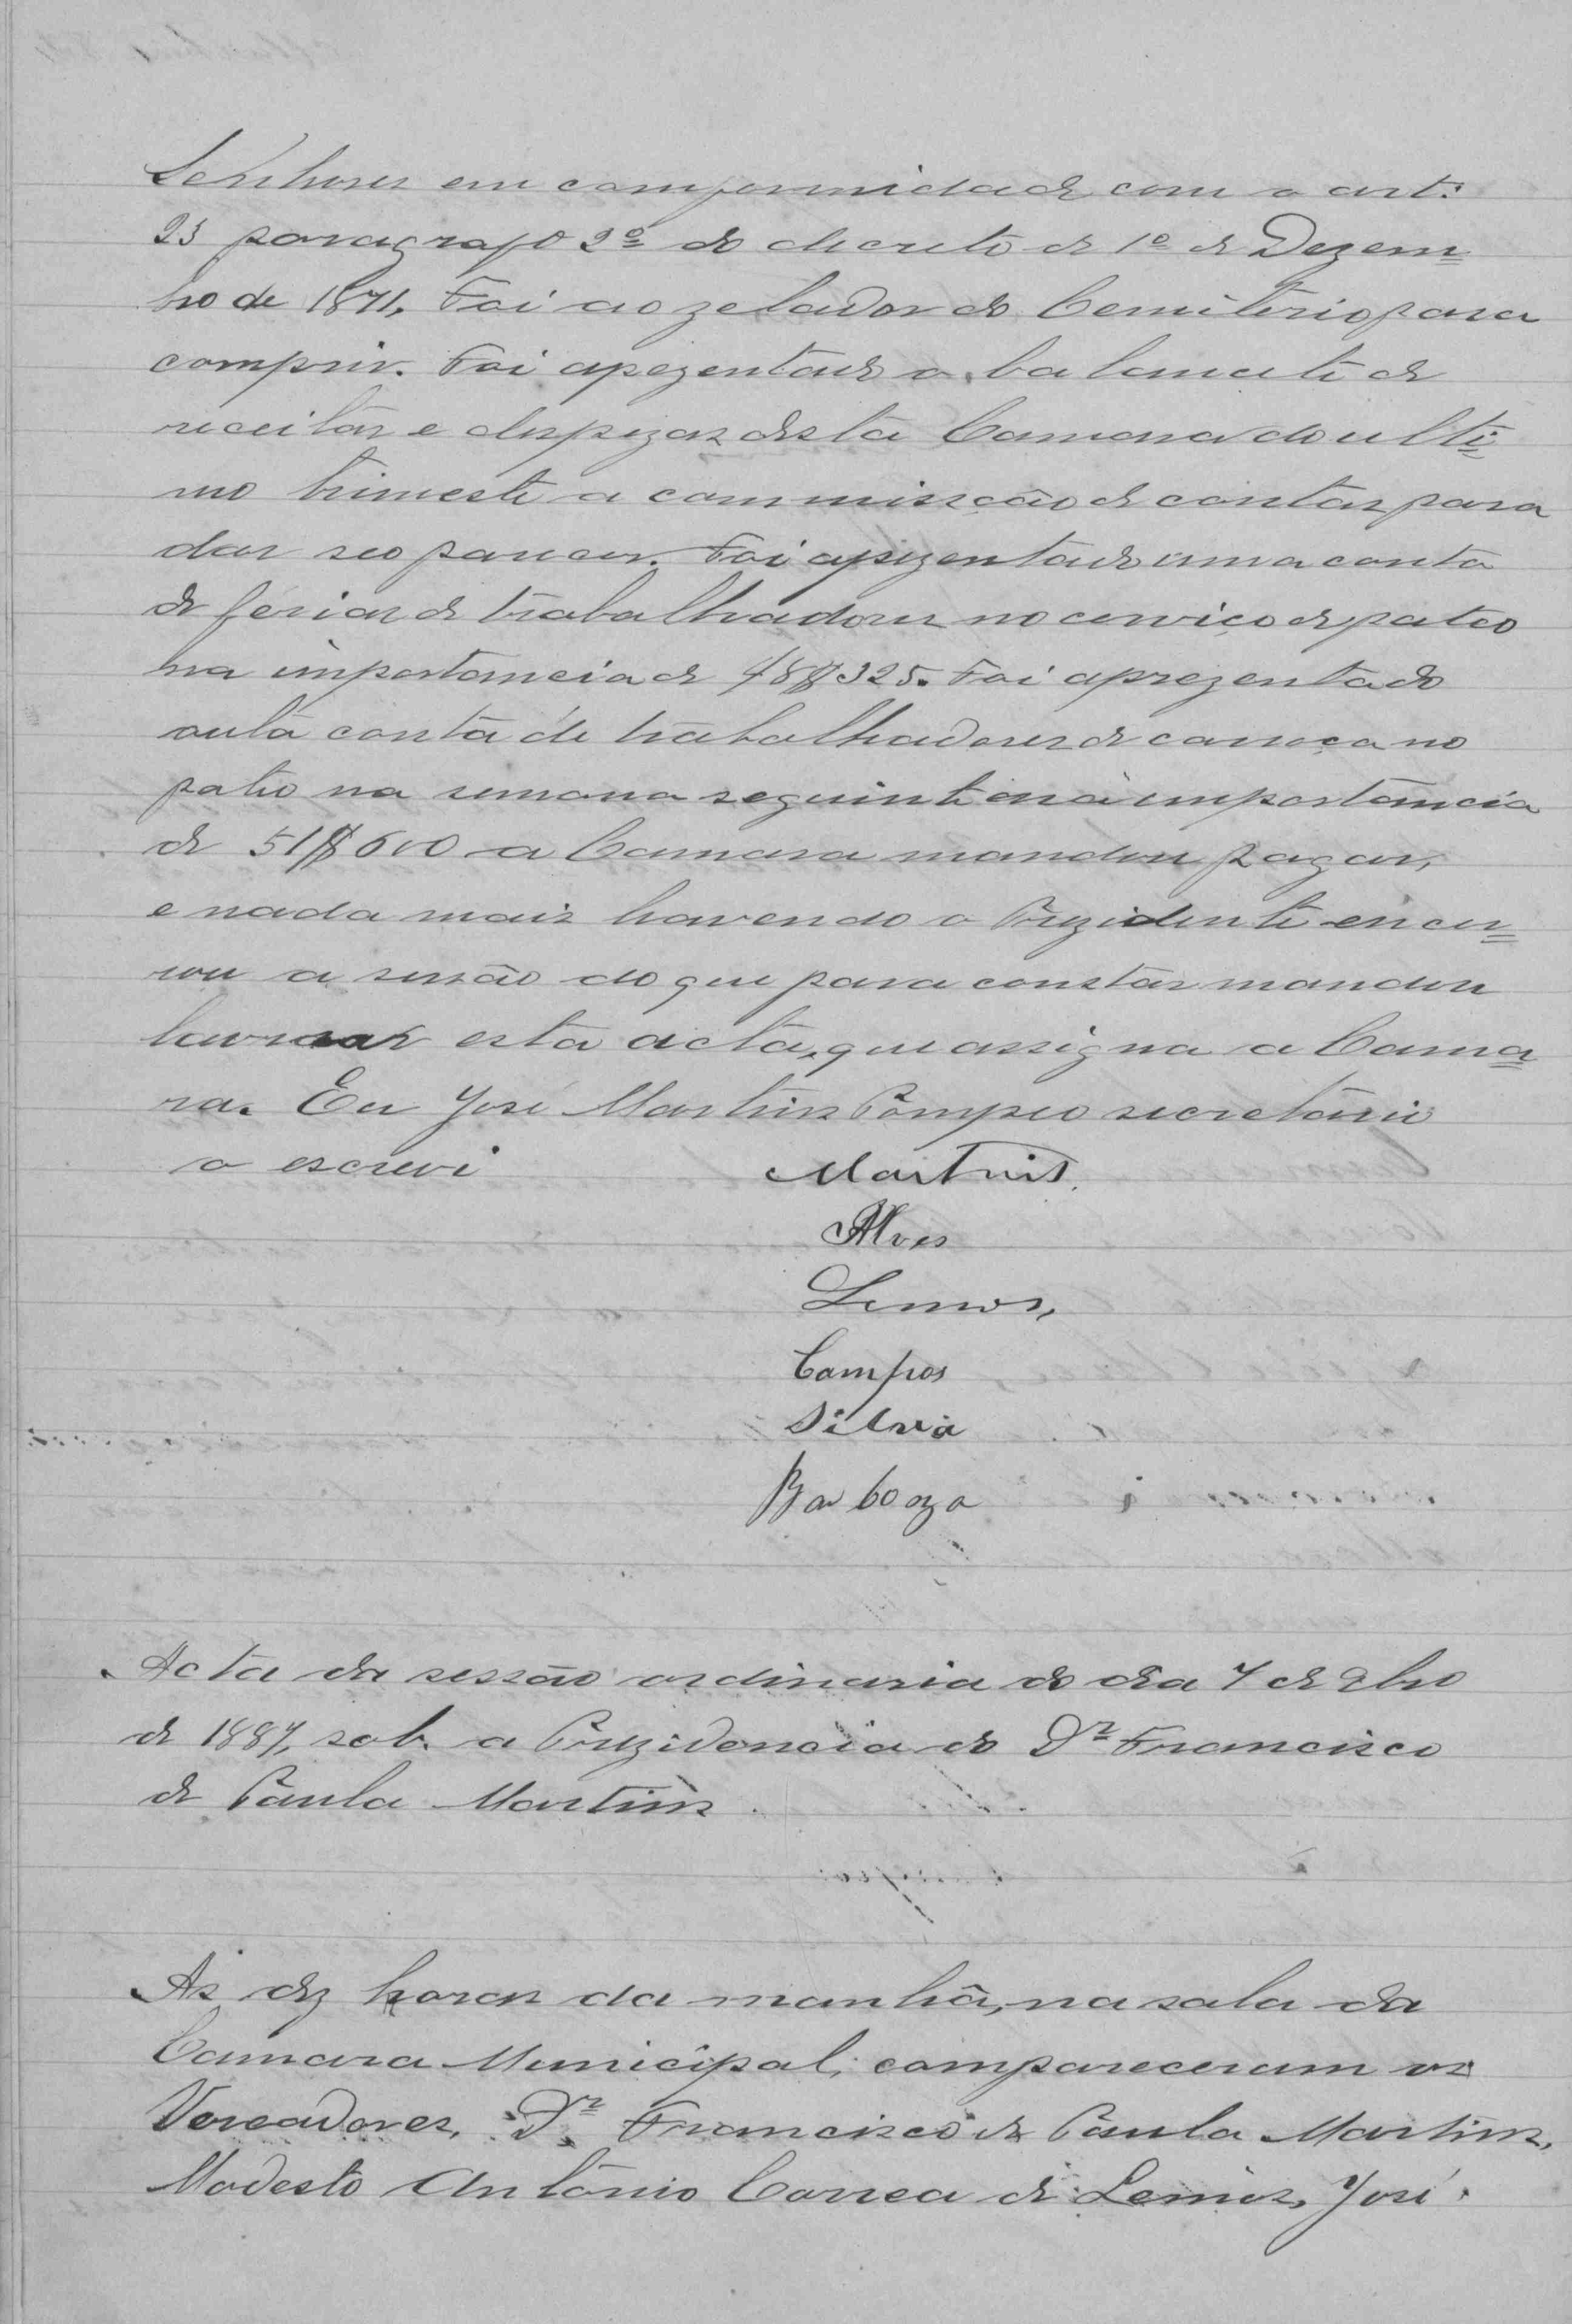 Senhores em comformidade com o art:
23 paragrafo 2º do decreto de 1º de Dezem=
bro de 1871. Foi ao zelador do Cemiterio para
comprir. Foi apezentado o balancete de
receitas e despezas desta Camara do ulti=
mo trimeste a commissão de contas para
dar seo parecer. Foi apezentado uma conta
de ferias de trabalhadores no cerviço de pateo
na importancia de 48$325. Foi aprezentado
outa conta de trabalhadores de carroça no
patio na semana seguinte na importancia
de 51$600 a Camara mandou pagar,
e nada mais havendo o Prezidente encer=
rou a sessão do que para constar mandou
lavrar esta acta, que assigna a Cama=
ra. Eu José Martins Pompeo secretario
o escrevi
Martins.
Alves
Lemos,
Campos
Silva
Barboza
Acta da sessão ordinaria do dia 7 de 9bro
de 1887, sob. a Prezidencia do Dr Francisco
de Paula Martins
As dez horas da manhã, na sala da
Camara Municipal, compareceram os
Vereadores, Dr. Francisco de Paula Martins,
Modesto Antonio Correa de Lemos, José